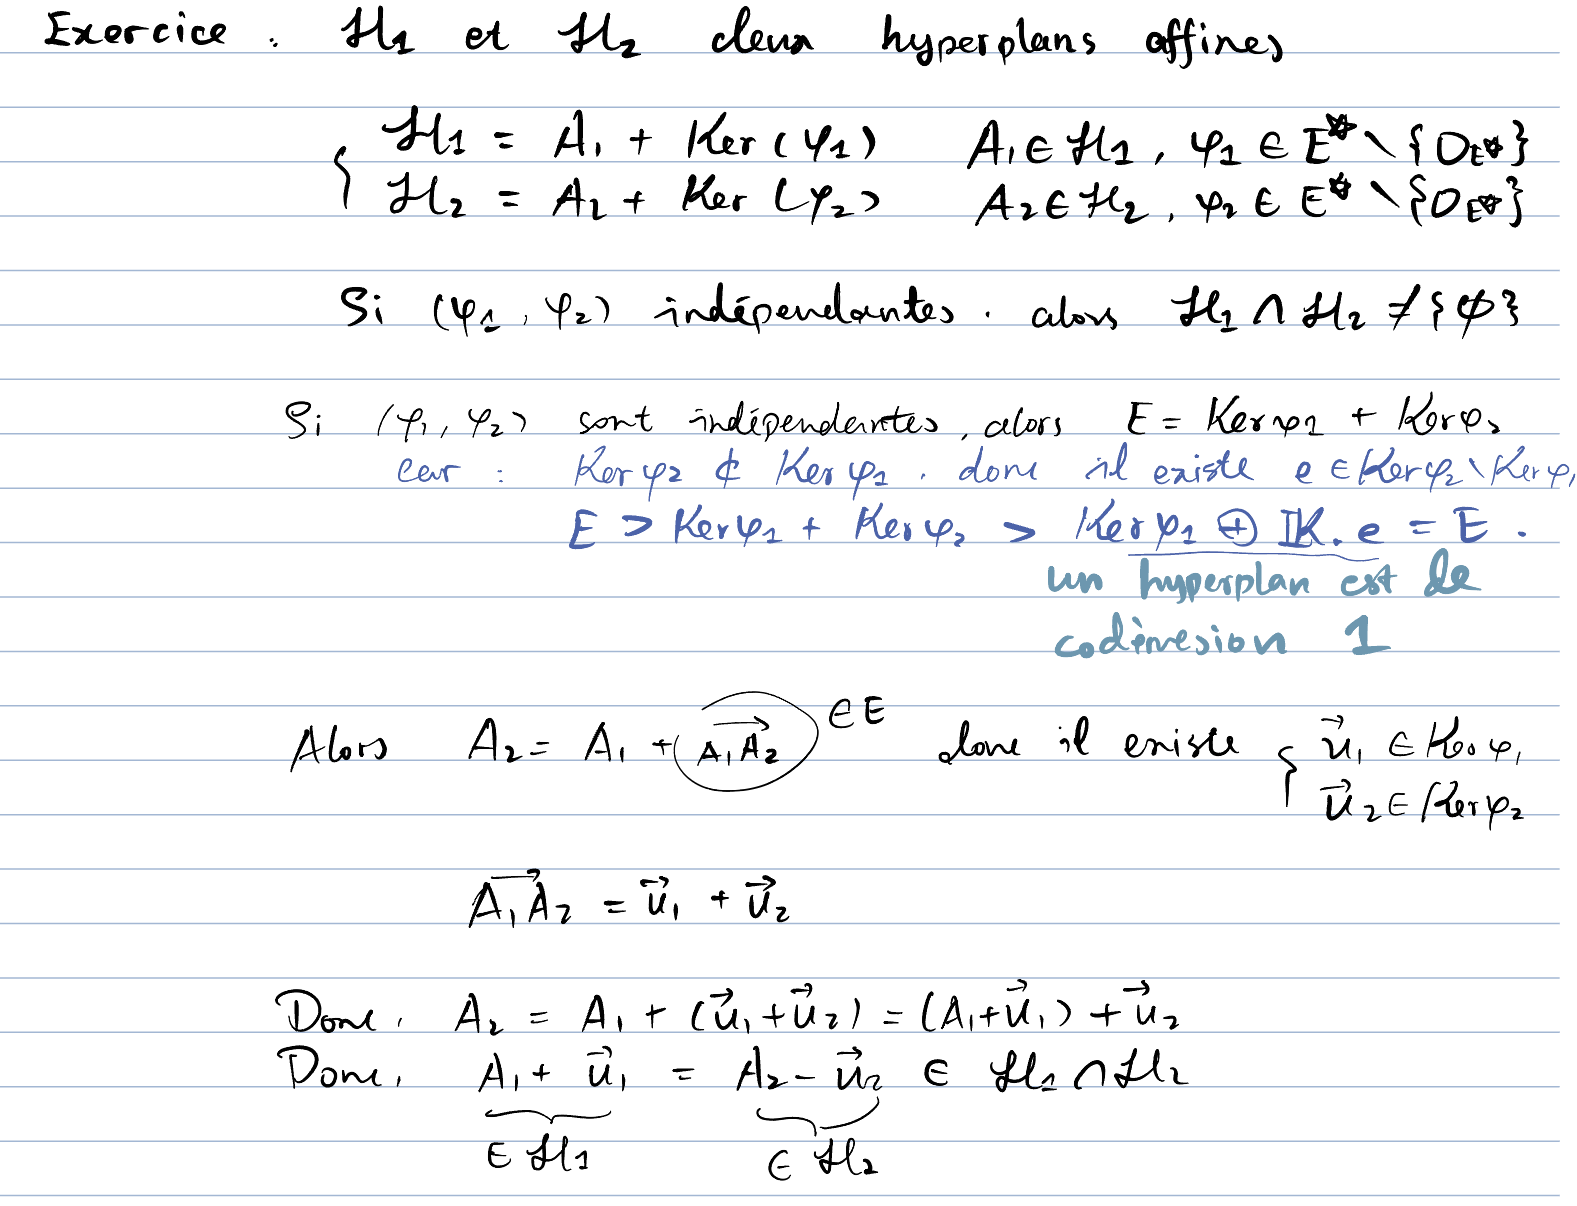 Exercice . H1 et H2 deux hyperplans affines
{ H1 = A1 + Ker(φ1) A1 ∈ H1 , φ1 ∈ E* \ {0E*}
H2 = A2 + Ker(φ2) A2 ∈ H2 , φ2 ∈ E* \ {0E*}
Si (φ1, φ2) indépendantes . alors H1 ∩ H2 ≠ {∅}
Si (φ1, φ2) sont indépendantes, alors E = Ker φ1 + Ker φ2
car : Ker φ2 ⊄ Ker φ1 . donc il existe e ∈ Ker φ2 \ Ker φ1
E > Ker φ1 + Ker φ2 > Ker φ1 ⊕ IK. e = E .
un hyperplan est de
codimesion 1
Alors A2 = A1 + A1A2→ ∈ E donc il existe { u→1 ∈ Ker φ1
u→2 ∈ Ker φ2
A1A2→ = u→1 + u→2
Donc, A2 = A1 + (u→1 + u→2) = (A1 + u→1) + u→2
Donc, A1 + u→1 = A2 - u→2 ∈ H1 ∩ H2
∈ H1 ∈ H2